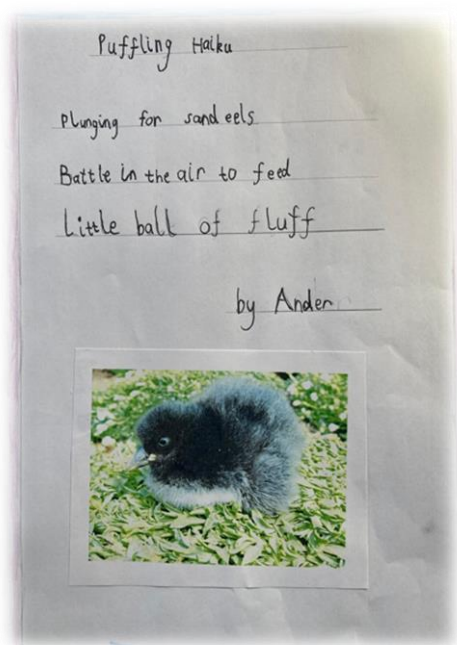 Puffling Haiku
Plunging for sand eels
Battle in the air to feed
Little ball of fluff
by Ander